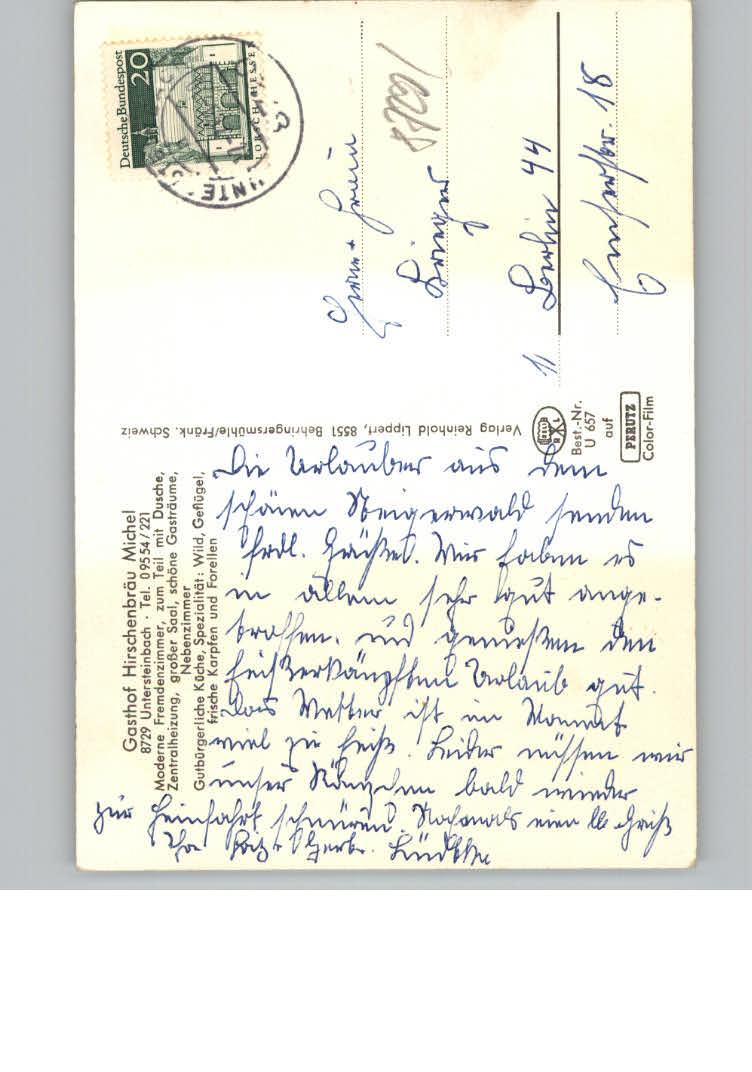 Gasthof Hirschenbräu Michel
8729 Untersteinbach · Tel. 09554/221
Moderne Fremdenzimmer, zum Teil mit Dusche,
Zentralheizung, großer Saal, schöne Gasträume,
Nebenzimmer
Gutbürgerliche Küche, Spezialität: Wild, Geflügel,
frische Karpfen und Forellen
Die Urlauber aus dem
schönen Steigerwald senden
frdl. Grüße. Wir haben es
in allem sehr gut ange-
troffen. und genießen den
heißerkämpften Urlaub gut.
Das Wetter ist im Moment
viel zu heiß. Leider müssen wir
unser Ränzchen bald wieder
zur Heimfahrt schnüren. Nochmals einen lb. Gruß
Ihre Lüdtke
Verlag Reinhold Lippert, 8551 Behringersmühle/Fränk. Schweiz
RL
Best.-Nr.
U 657
auf
PERUTZ
Color-Film
Deutsche Bundespost
20
LORSCH/HESSEN
UNTE
Herrn + Frau
Krieger
11 Berlin 44
Emserstr. 18